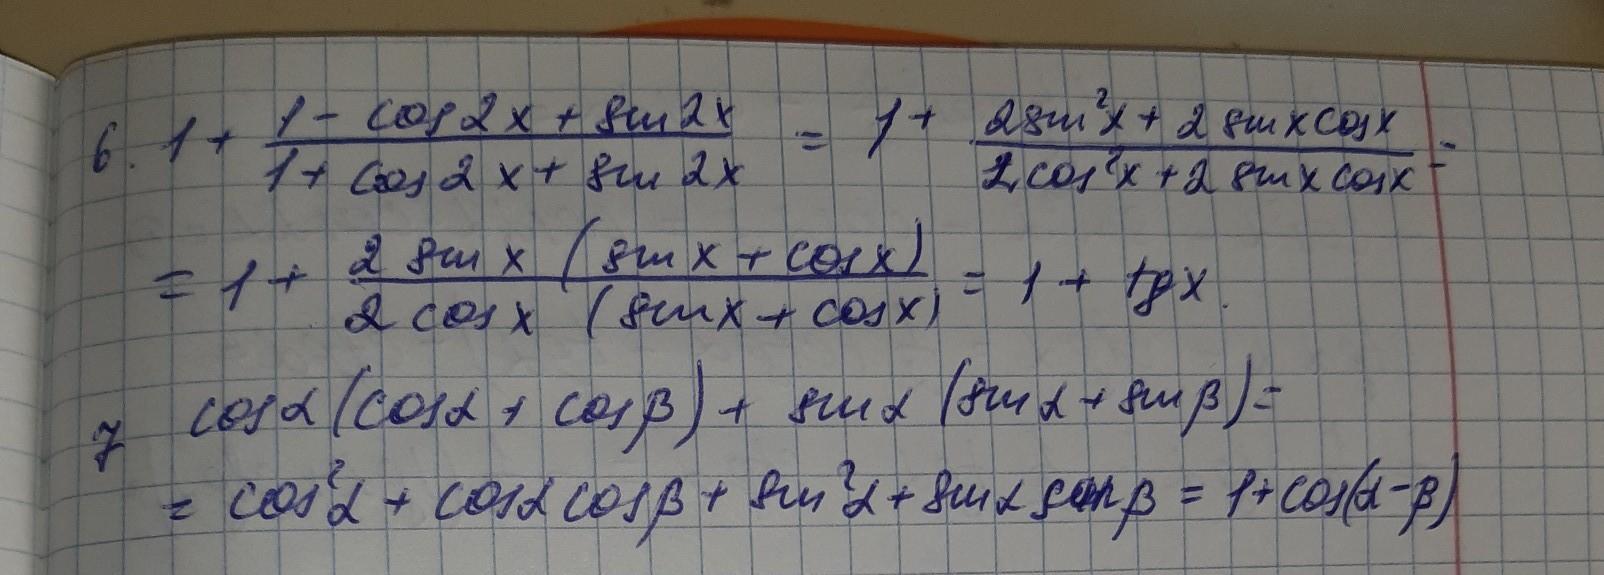 6. 1 + (1 - cos 2x + sin 2x)/(1 + cos 2x + sin 2x) = 1 + (2 sin²x + 2 sin x cos x)/(2 cos²x + 2 sin x cos x) =
= 1 + (2 sin x (sin x + cos x))/(2 cos x (sin x + cos x)) = 1 + tg x.
7 cos α (cos α + cos β) + sin α (sin α + sin β) =
= cos²α + cos α cos β + sin²α + sin α sin β = 1 + cos(α - β)